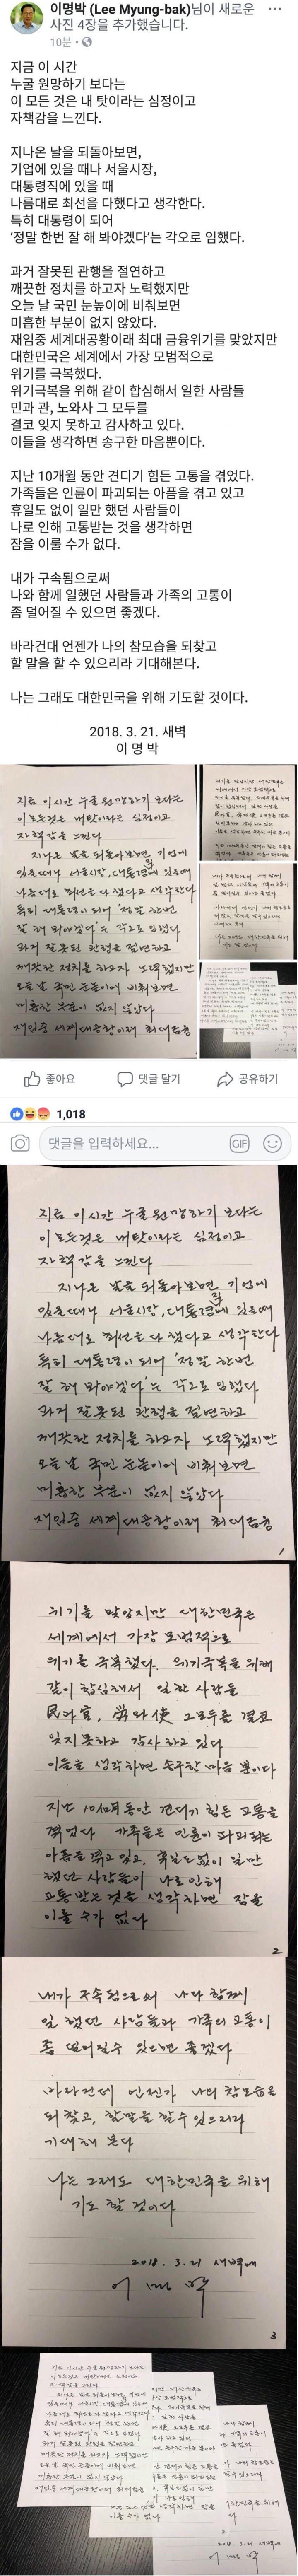 이명박 (Lee Myung-bak)님이 새로운
사진 4장을 추가했습니다.
10분
지금 이 시간
누굴 원망하기 보다는
이 모든 것은 내 탓이라는 심정이고
자책감을 느낀다.
지나온 날을 되돌아보면,
기업에 있을 때나 서울시장,
대통령직에 있을 때
나름대로 최선을 다했다고 생각한다.
특히 대통령이 되어
‘정말 한번 잘 해 봐야겠다’는 각오로 임했다.
과거 잘못된 관행을 절연하고
깨끗한 정치를 하고자 노력했지만
오늘 날 국민 눈높이에 비춰보면
미흡한 부분이 없지 않았다.
재임중 세계대공황이래 최대 금융위기를 맞았지만
대한민국은 세계에서 가장 모범적으로
위기를 극복했다.
위기극복을 위해 같이 합심해서 일한 사람들
민과 관, 노와사 그 모두를
결코 잊지 못하고 감사하고 있다.
이들을 생각하면 송구한 마음뿐이다.
지난 10개월 동안 견디기 힘든 고통을 겪었다.
가족들은 인륜이 파괴되는 아픔을 겪고 있고
휴일도 없이 일만 했던 사람들이
나로 인해 고통받는 것을 생각하면
잠을 이룰 수가 없다.
내가 구속됨으로써
나와 함께 일했던 사람들과 가족의 고통이
좀 덜어질 수 있으면 좋겠다.
바라건대 언젠가 나의 참모습을 되찾고
할 말을 할 수 있으리라 기대해본다.
나는 그래도 대한민국을 위해 기도할 것이다.
2018. 3. 21. 새벽
이 명 박
지금 이 시간 누굴 원망하기 보다는
이 모든것은 내탓이라는 심정이고
자책감을 느낀다
지나온 날을 되돌아보면 기업에
있을때나 서울시장, 대통령직에 있을때
나름대로 최선을 다 했다고 생각한다
특히 대통령이 되어 '정말 한번
잘 해 봐야겠다'는 각오로 임했다
과거 잘못된 관행을 절연하고
깨끗한 정치를 하고자 노력했지만
오늘 날 국민 눈높이에 비춰보면
미흡한 부분이 없지 않았다
재임중 세계대공황이래 최대금융
좋아요
댓글 달기
공유하기
1,018
댓글을 입력하세요...
GIF
지금 이 시간 누굴 원망하기 보다는
이 모든것은 내탓이라는 심정이고
자책감을 느낀다
지나온 날을 되돌아보면 기업에
있을때나 서울시장, 대통령직에 있을때
나름대로 최선을 다 했다고 생각한다
특히 대통령이 되어 '정말 한번
잘 해 봐야겠다'는 각오로 임했다
과거 잘못된 관행을 절연하고
깨끗한 정치를 하고자 노력했지만
오늘 날 국민 눈높이에 비춰보면
미흡한 부분이 없지 않았다
재임중 세계대공황이래 최대금융
1
위기를 맞았지만 대한민국은
세계에서 가장 모범적으로
위기를 극복했다. 위기극복을 위해
같이 합심해서 일한 사람들
民과 官, 勞와 使 그 모두를 결코
잊지 못하고 감사하고 있다
이들을 생각하면 송구한 마음 뿐이다
지난 10개월 동안 견디기 힘든 고통을
겪었다 가족들은 인륜이 파괴되는
아픔을 겪고 있고, 휴일도 없이 일만
했던 사람들이 나로 인해
고통받는 것을 생각하면 잠을
이룰 수가 없다
2
내가 구속됨으로써 나와 함께
일 했던 사람들과 가족의 고통이
좀 덜어질수 있으면 좋겠다
바라건대 언젠가 나의 참모습을
되찾고, 할말을 할수 있으리라
기대해 본다
나는 그래도 대한민국을 위해
기도 할 것이다
2018. 3. 21 새벽에
이 명 박
3